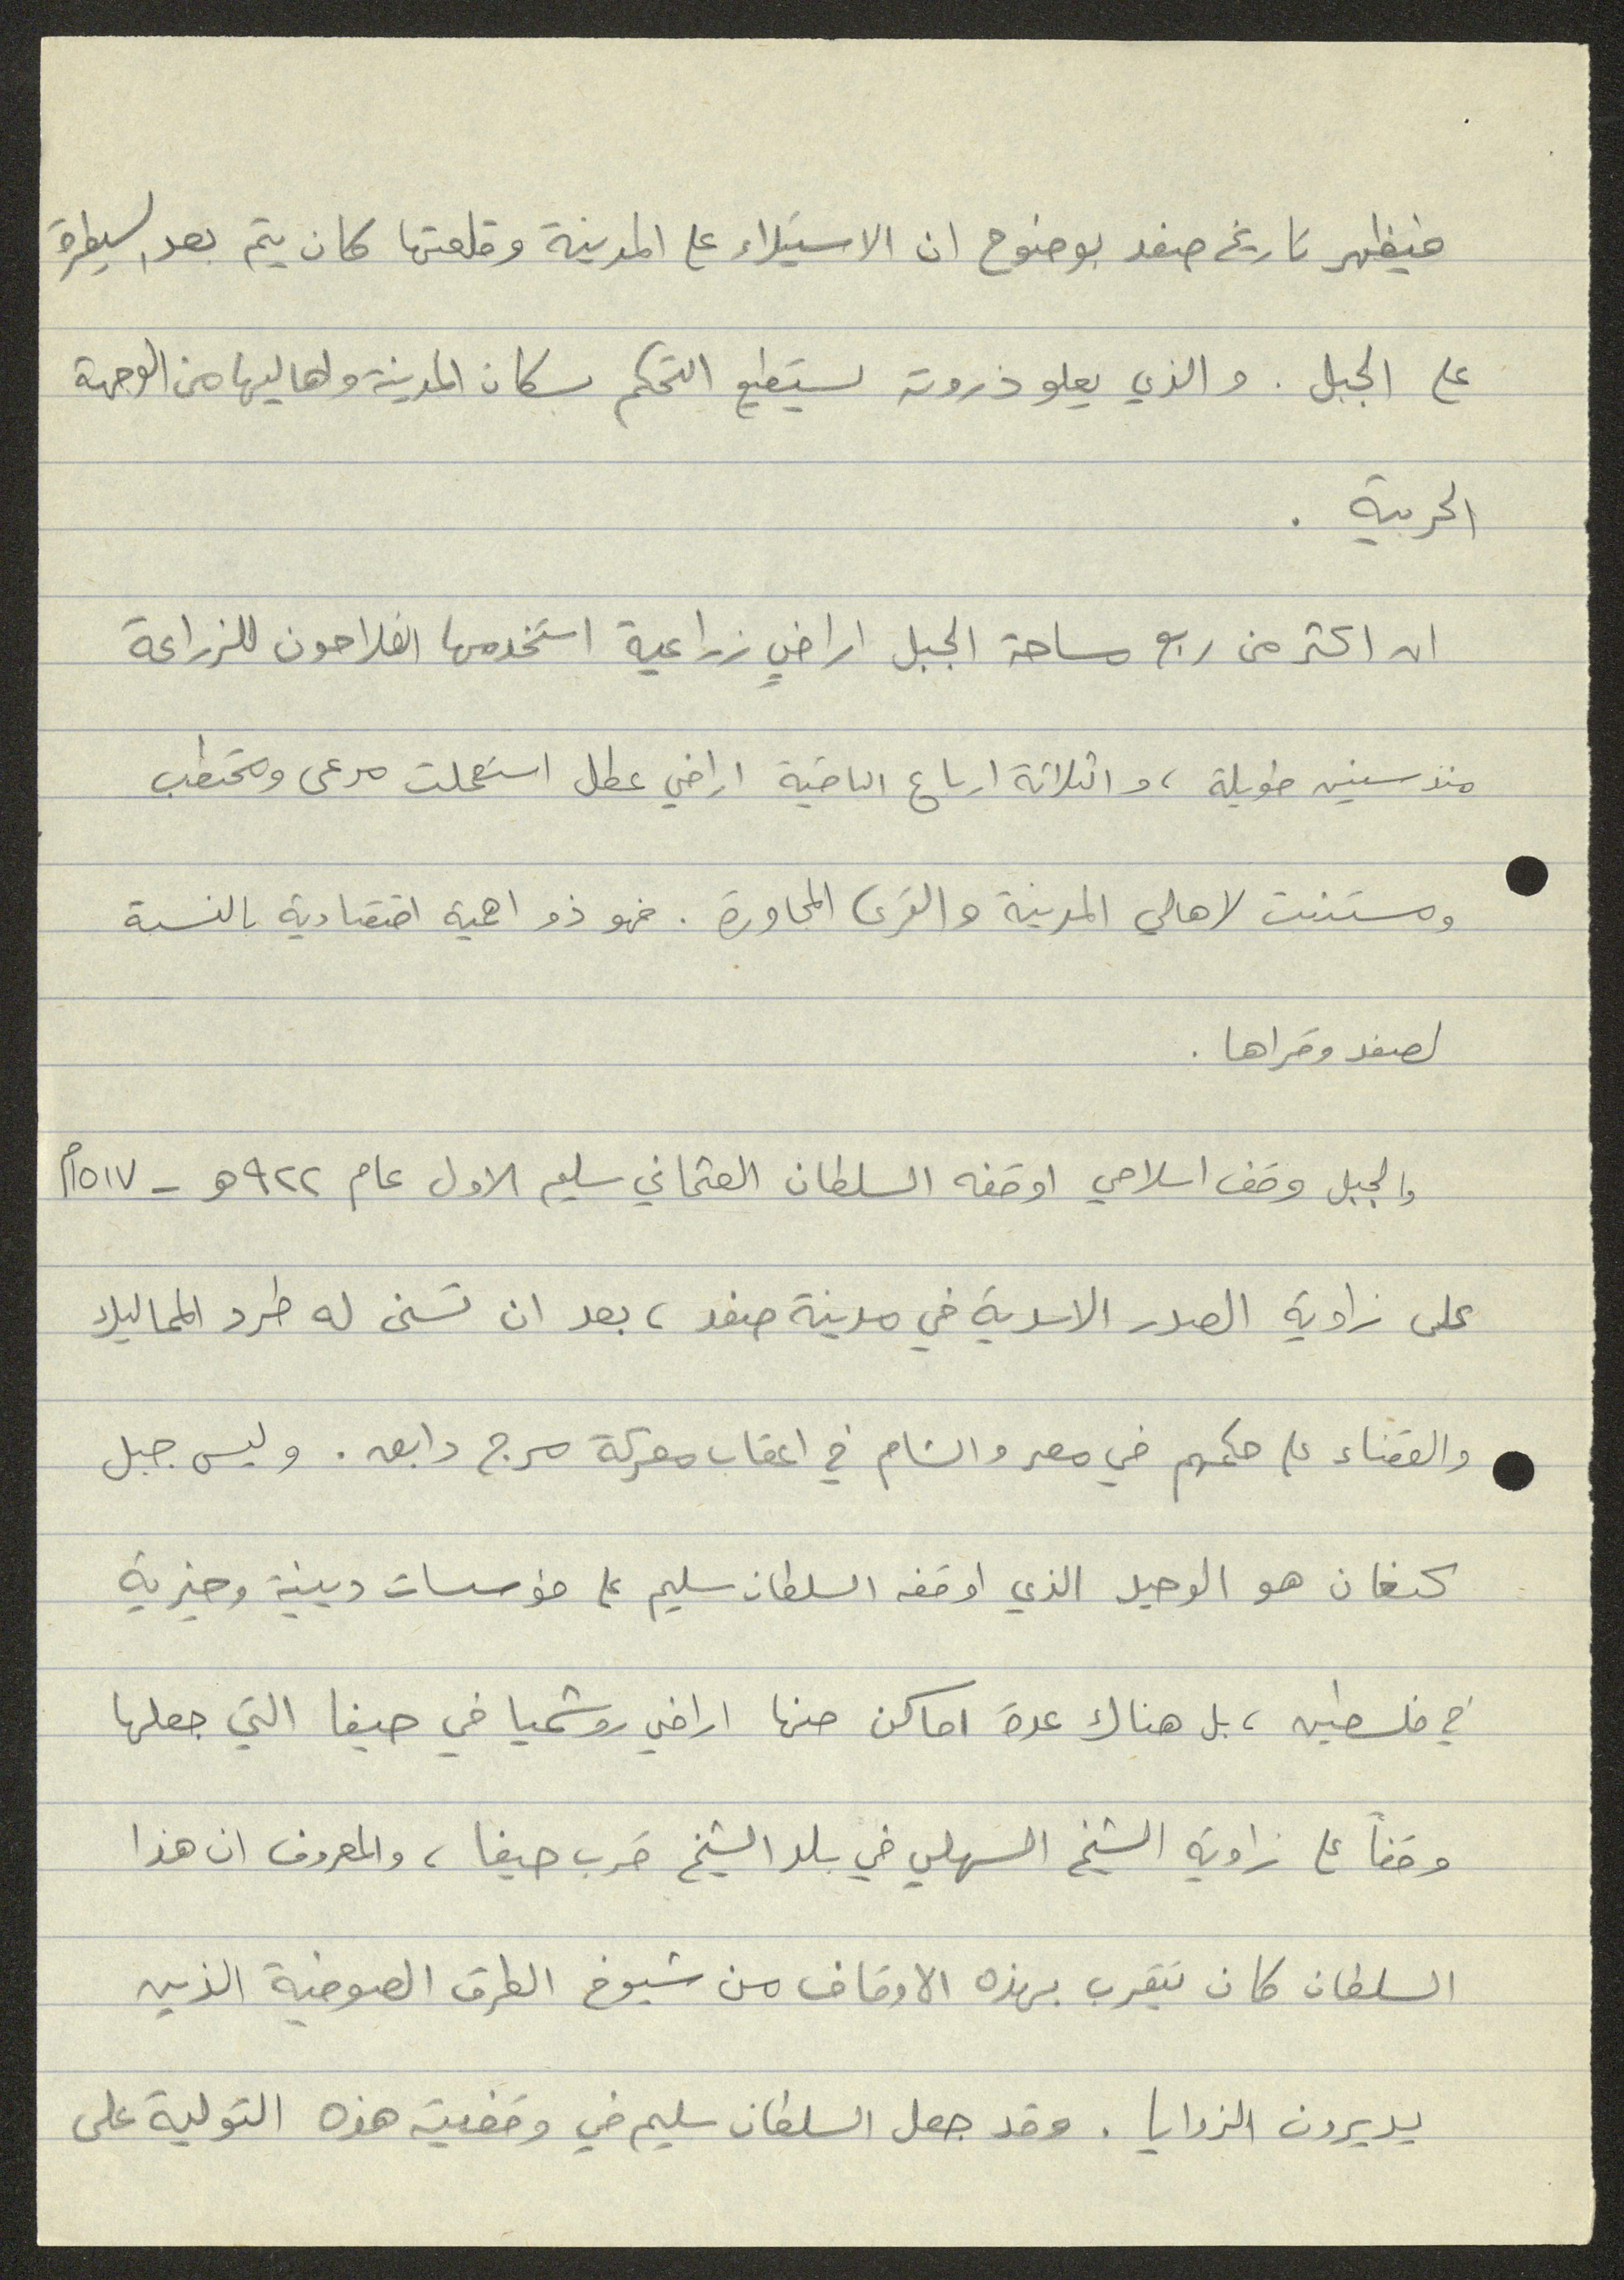 فيظهر تاريخ صفد بوضوح ان الاستيلاء على المدينة وقلعتها كان يتم بعد السيطرة
على الجبل . والذي يعلو ذروته يستطيع التحكم بسكان المدينة واهاليها من الوجهة
الحربية .
ان اكثر من ربع مساحة الجبل اراضٍ زراعية استخدمها الفلاحون للزراعة
منذ سنين طويلة ، والثلاثة ارباع الباقية اراضي عطل استعملت مرعى ومحتطب
ومستنبت لاهالي المدينة والقرى المجاورة . فهو ذو اهمية اقتصادية بالنسبة
لصفد وقراها .
والجبل وقف اسلامي اوقفه السلطان العثماني سليم الاول عام ٩٢٢ هـ - ١٥١٧م
على زاوية الصدر الاسدية في مدينة صفد ، بعد ان تسنى له طرد المماليك
والقضاء على حكمهم في مصر والشام في اعقاب معركة مرج دابق . وليس جبل
كنعان هو الوحيد الذي اوقفه السلطان سليم على مؤسسات دينية وخيرية
في فلسطين ، بل هناك عدة اماكن منها اراضي روشميا في حيفا التي جعلها
وقفاً على زاوية الشيخ السهلي في بلد الشيخ قرب حيفا ، والمعروف ان هذا
السلطان كان يتقرب بهذه الاوقاف من شيوخ الطرق الصوفية الذين
يديرون الزوايا . وقد جعل السلطان سليم في وقفيته هذه التولية على